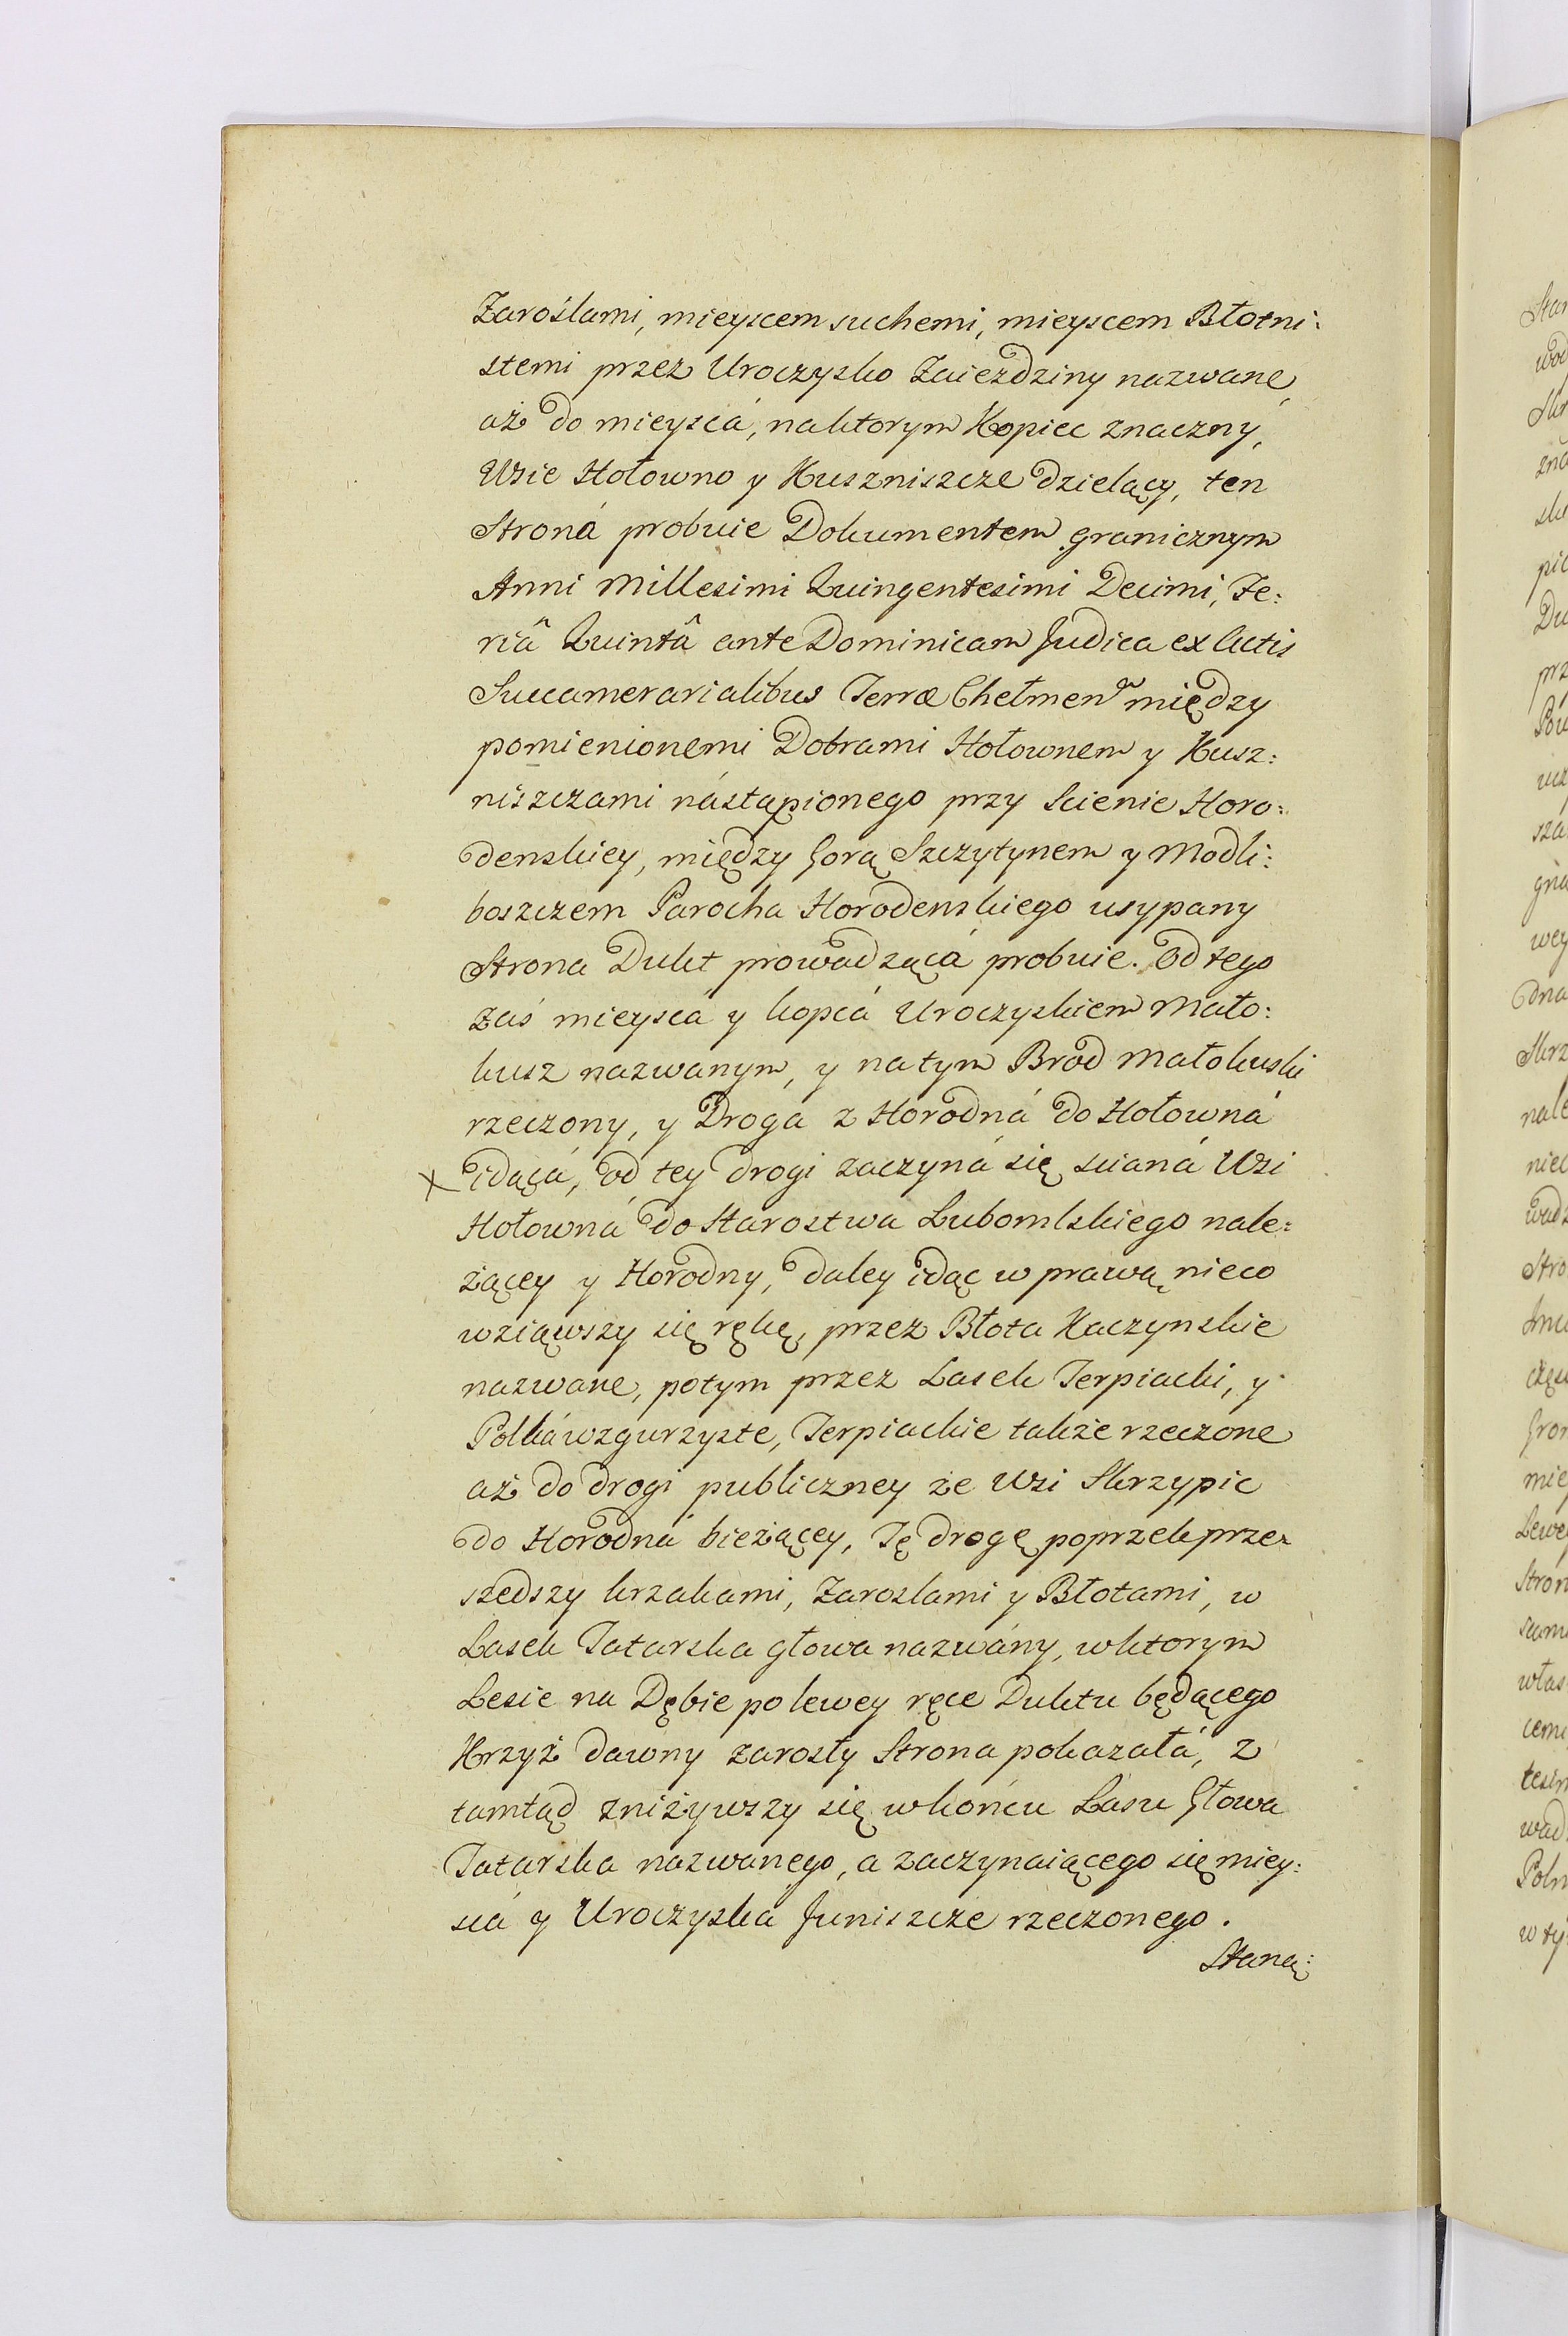 Zaroślami, mieyscem suchemi, mieyscem Błotni:
stemi przez Uroczysko Zaiezdziny nazwane,
aż do mieyscá, na ktorym Kopiec znaczny,
Wsie Hołowno y Kuszniszcze dzielący, ten
Stroná probuie Dokumentem granicznym
Anni Millesimi Quingentesimi Decimi, Fe:
riâ Quintâ ante Dominicam Judica ex Actis
Succamerarialibus Terræ Chełmen. między
pomienionemi Dobrami Hołownem y Kusz:
niszczami nástąpionego przy Scienie Horo:
denskiey, między Gorą Szczytynem y Modli:
boszczem Parocha Horodenskiego usypany
Strona Dukt prowadzącá probuie. Od tego
zaś mieyscá y kopcá Uroczyskiem Mało:
kusz nazwanym, y na tym Brod Małokuski
rzeczony, y Droga z Horodná do Hołowná
x idącá, od tey drogi zaczyná się scianá Wsi
Hołowná do Starostwa Lubomlskiego nale:
żącey y Horodny, daley idąc w prawą nieco
wziąwszy się rękę, przez Błota Kaczynskie
nazwane, potym przez Lasek Terpiacki, y
Polká wzgurzyste, Terpiackie także rzeczone
aż do drogi publiczney ze Wsi Skrzypic
do Horodná bieżącey, Tę drogę poprzek prze:
szedszy krzakami, Zaroslami y Błotami, w
Lasek Tatarska głowa nazwány, w ktorym
Lesie na Dębie po lewey ręce Duktu będącego
Krzyż dawny zarosły Strona pokazałá, z
tamtąd zniżywszy się w końcu Lasu Głowa
Tatarska nazwanego, a zaczynaiącego się miey:
scá y Uroczyská Juniszcze rzeczonego.
Staną: